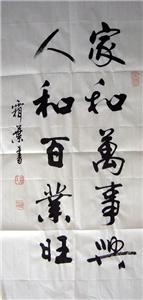 家和萬事興
人和百業旺
霜葉書